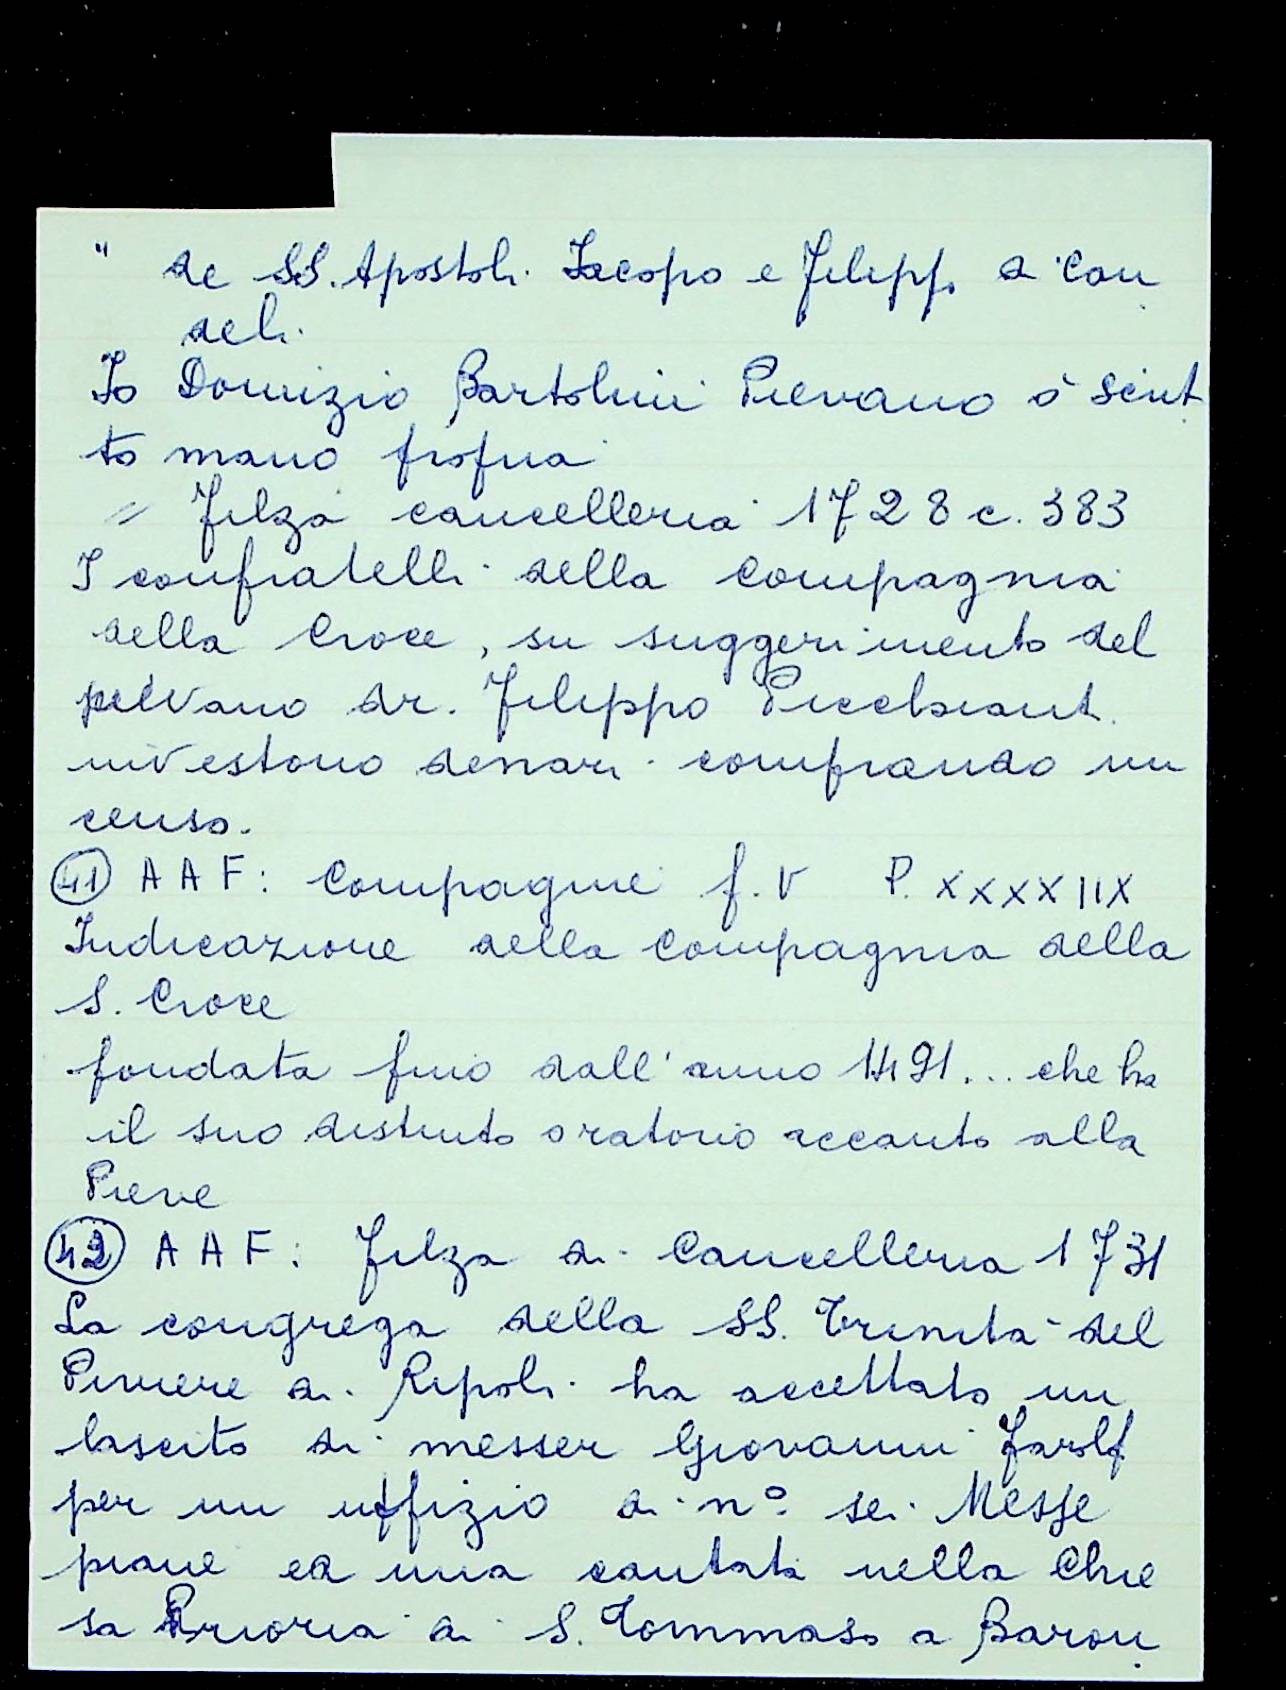 " de SS. Apostoli Iacopo e Filippo a Can
deli.
Io Domizio Bartolini Pievano ò scrit
to mano propria
" Filza cancelleria 1728 c. 383
I confratelli della compagnia
della Croce, su suggerimento del
peivano dr. Filippo Piccbianti
investono denari comprando un
censo.
(41) A A F: Compagnie f. V P. XXXXIIX
Indicazione della Compagnia della
S. Croce
fondata fino dall'anno 1491... che ha
il suo distinto oratorio accanto alla
Pieve
(42) A A F: Filza di Cancelleria 1731
La congrega della SS. Trinità del
Piviere di Ripoli ha accettato un
lascito di messer Giovanni Farolf
per un uffizio di n° sei Messe
piane ed una cantata nella Chie
sa Prioria di S. Tommaso a Baron